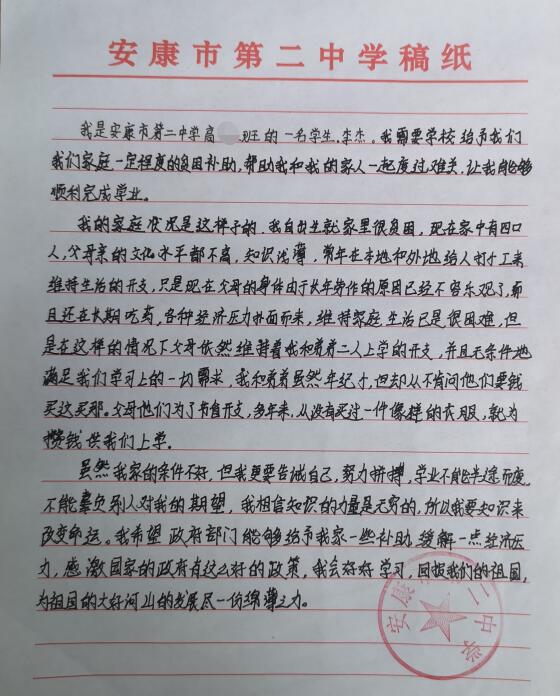 安康市第二中学稿纸
我是安康市第二中学高 班的一名学生.李杰。我需要学校给予我们
我们家庭一定程度的贫困补助,帮助我和我的家人一起度过难关,让我能够
顺利完成学业。
我的家庭状况是这样子的.我自出生就家里很贫困,现在家中有四口
人,父母亲的文化水平都不高,知识浅薄,常年在本地和外地给人打个工来
维持生活的开支,只是现在父母的身体由于长年劳作的原因已经不容乐观了,而
且还在长期吃药,各种经济压力扑面而来,维持家庭生活已是很困难,但
是在这样的情况下父母依然维持着我和弟弟二人上学的开支,并且无条件地
满足我们学习上的一切需求,我和弟弟虽然年纪小,但却从不肯问他们要钱
买这买那。父母他们为了节省开支,多年来,从没有买过一件像样的衣服,就为
攒钱供我们上学。
虽然我家的条件不好,但我更要告诫自己,努力拼搏,学业不能半途而废
不能辜负别人对我的期望,我相信知识的力量是无穷的,所以我要知识来
改变命运。我希望政府部门能够给予我家一些补助,缓解一点经济压
力,感激国家的政府有这么好的政策,我会好好学习,回报我们的祖国,
为祖国的大好河山的发展尽一份绵薄之力。
安康 二中学